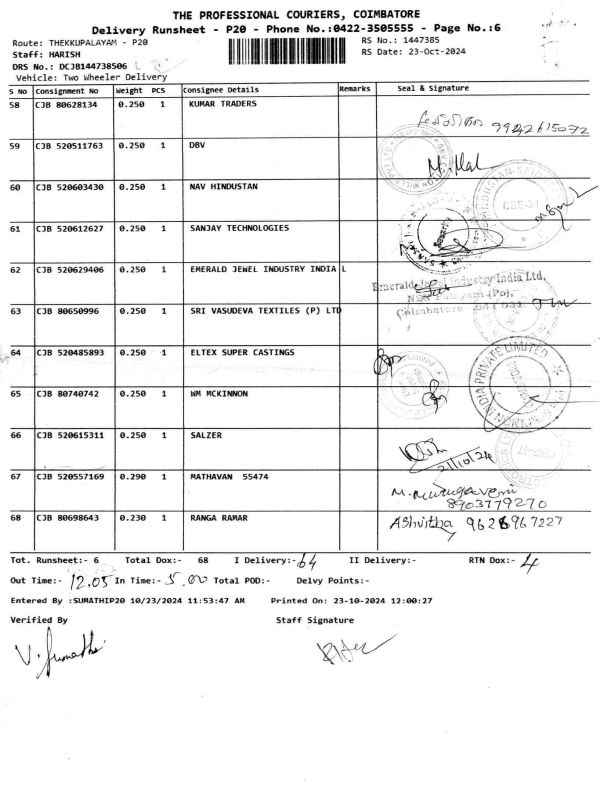 THE PROFESSIONAL COURIERS, COIMBATORE
Delivery Runsheet - P20 - Phone No.:0422-3505555 - Page No.:6
Route: THEKKUPALAYAM - P20 RS No.: 1447385
Staff: HARISH RS Date: 23-Oct-2024
DRS No.: DCJB144738506
Vehicle: Two Wheeler Delivery
S No Consignment No Weight PCS Consignee Details Remarks Seal & Signature
58 CJB 80628134 0.250 1 KUMAR TRADERS
9942615072
59 CJB 520511763 0.250 1 DBV
60 CJB 520603430 0.250 1 NAV HINDUSTAN
CBE-31
61 CJB 520612627 0.250 1 SANJAY TECHNOLOGIES
62 CJB 520629406 0.250 1 EMERALD JEWEL INDUSTRY INDIA L
Emerald Jewel Industry India Ltd,
Coimbatore
63 CJB 80650996 0.250 1 SRI VASUDEVA TEXTILES (P) LTD
64 CJB 520485893 0.250 1 ELTEX SUPER CASTINGS
INDIA PRIVATE LIMITED
65 CJB 80740742 0.250 1 WM MCKINNON
66 CJB 520615311 0.250 1 SALZER
21/10/24
67 CJB 520557169 0.290 1 MATHAVAN 55474
M. Murugaveni
8903779270
68 CJB 80698643 0.230 1 RANGA RAMAR
Ashvitha 9626967227
Tot. Runsheet:- 6 Total Dox:- 68 I Delivery:- 64 II Delivery:- RTN Dox:- 4
Out Time:- 12.05 In Time:- 5.00 Total POD:- Delvy Points:-
Entered By :SUMATHIP20 10/23/2024 11:53:47 AM Printed On: 23-10-2024 12:00:27
Verified By Staff Signature
V. Sumathi